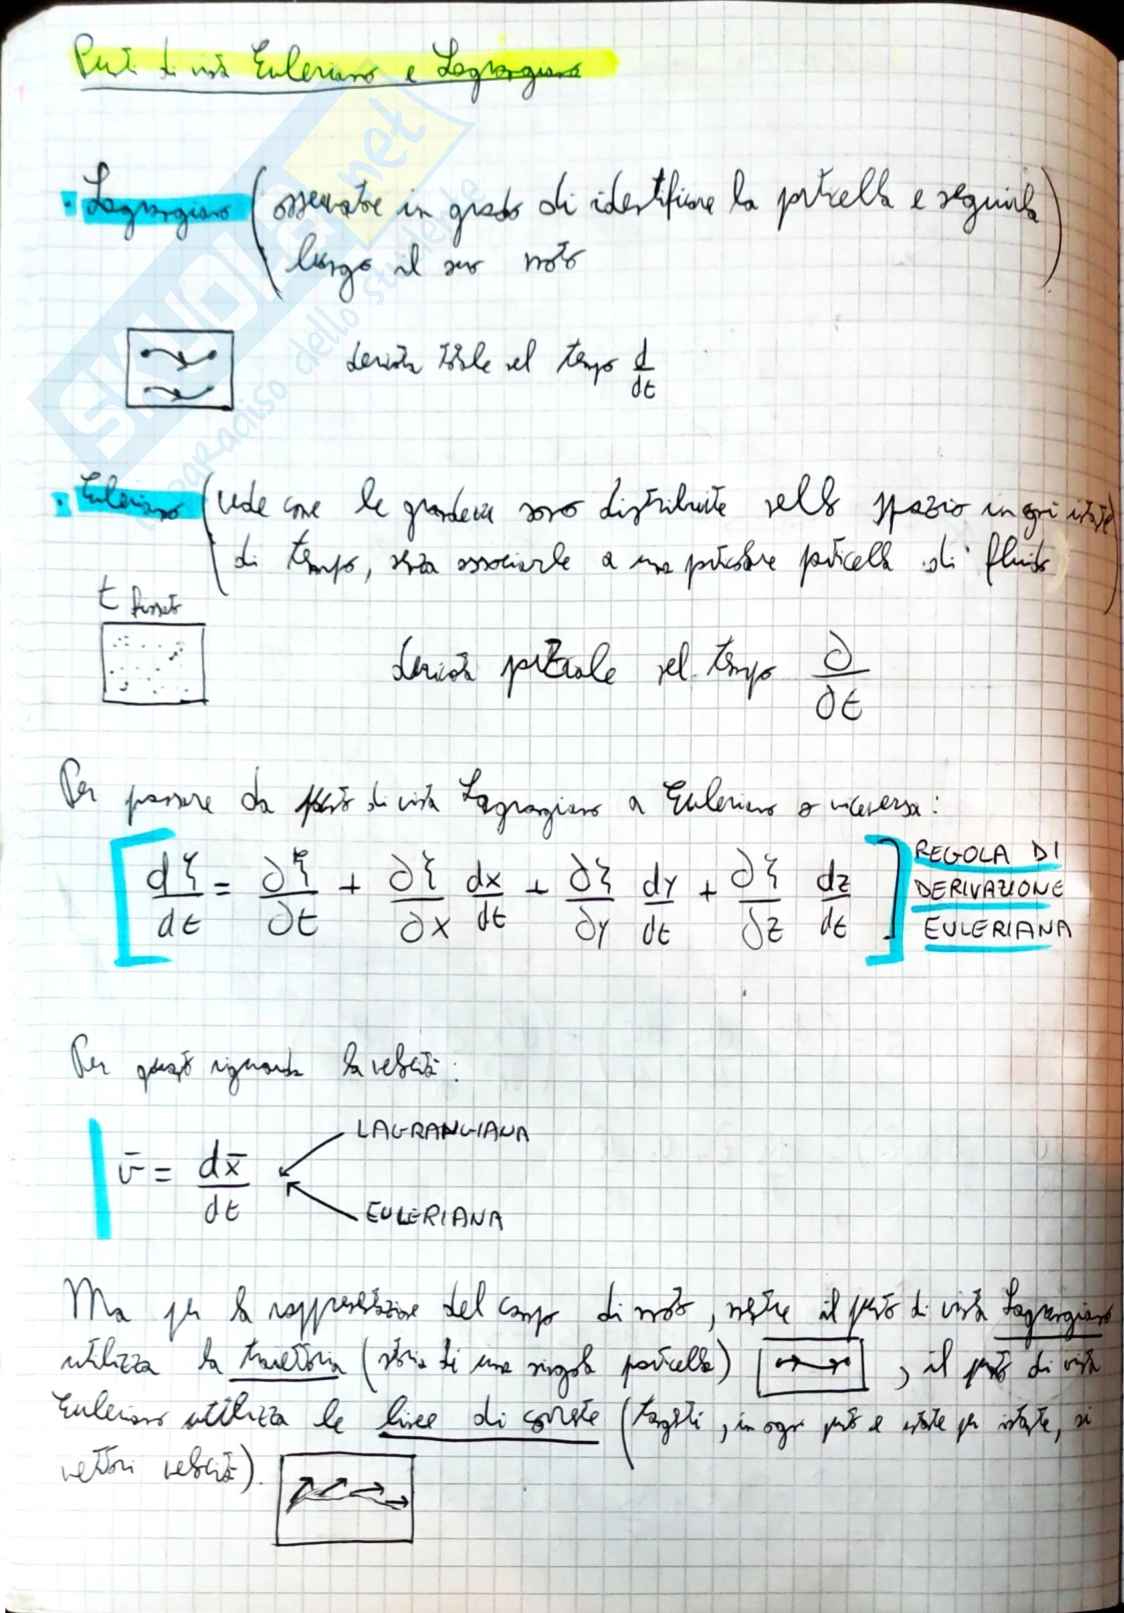 Punti di vista Euleriano e Lagrangiano
• Lagrangiano (osservatore in grado di identificare la particella e seguirla
lungo il suo moto)
derivata totale nel tempo d/dt
• Euleriano (vede come le grandezze sono distribuite nello spazio in ogni istante
di tempo, senza associarle a una particolare particella di fluido)
t fissato
derivata parziale nel tempo ∂/∂t
Per passare da punto di vista Lagrangiano a Euleriano o viceversa:
[dξ/dt = ∂ξ/∂t + ∂ξ/∂x dx/dt + ∂ξ/∂y dy/dt + ∂ξ/∂z dz/dt] REGOLA DI
DERIVAZIONE
EULERIANA
Per quanto riguarda la velocità:
LAGRANGIANA
v̄ = dx̄/dt
EULERIANA
Ma per la rappresentazione del campo di moto, mentre il punto di vista Lagrangiano
utilizza la traiettoria (storia di una singola particella) , il punto di vista
Euleriano utilizza le linee di corrente (tangenti, in ogni punto e istante per istante, ai
vettori velocità).
SKUOLA.net
il paradiso dello studente